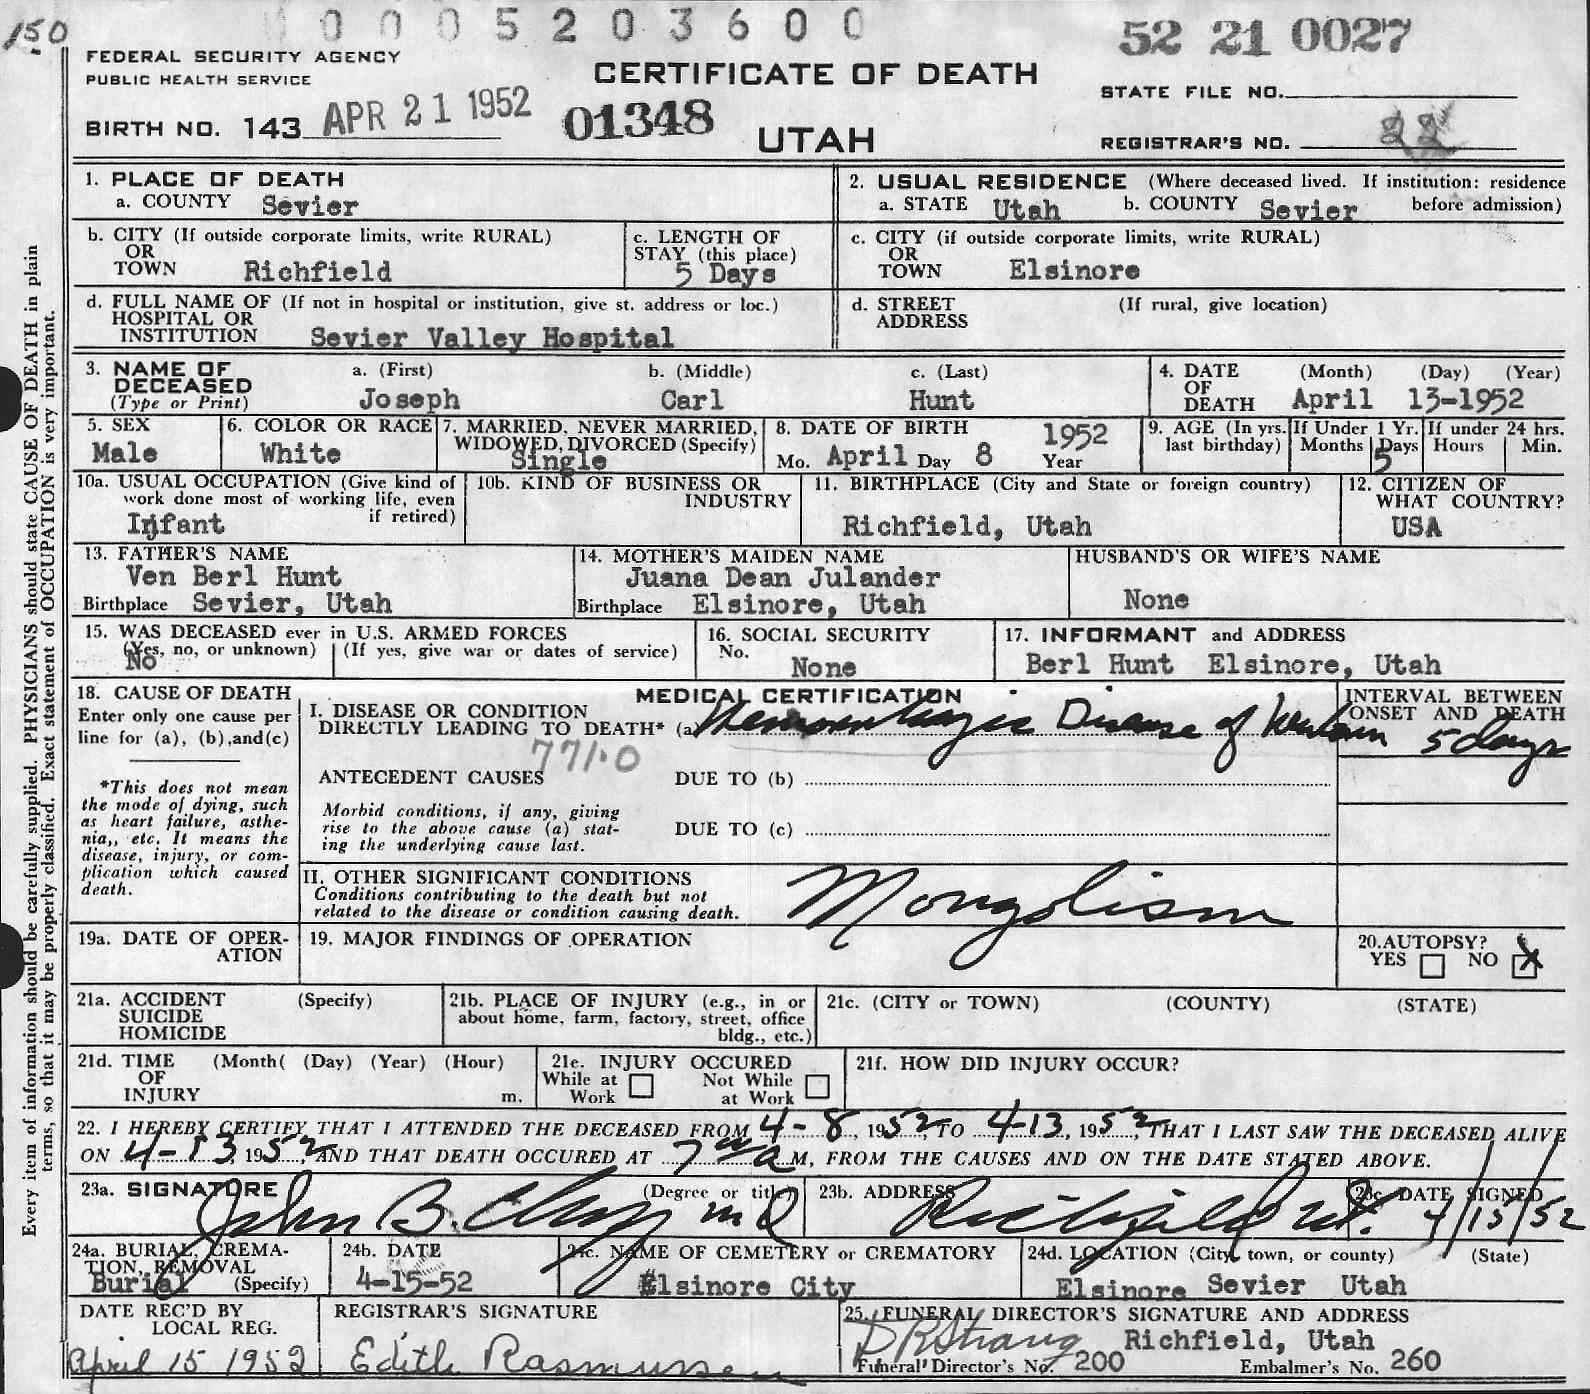 150
0 0 0 5 2 0 3 6 0 0
52 21 0027
FEDERAL SECURITY AGENCY
PUBLIC HEALTH SERVICE
CERTIFICATE OF DEATH
STATE FILE NO.
BIRTH NO. 143 APR 21 1952
01348
UTAH
REGISTRAR'S NO. 22
1. PLACE OF DEATH
a. COUNTY Sevier
2. USUAL RESIDENCE (Where deceased lived. If institution: residence before admission)
a. STATE Utah b. COUNTY Sevier
b. CITY (If outside corporate limits, write RURAL)
OR
TOWN Richfield
c. LENGTH OF
STAY (this place)
5 Days
c. CITY (if outside corporate limits, write RURAL)
OR
TOWN Elsinore
d. FULL NAME OF (If not in hospital or institution, give st. address or loc.)
HOSPITAL OR
INSTITUTION Sevier Valley Hospital
d. STREET (If rural, give location)
ADDRESS
3. NAME OF
DECEASED
(Type or Print)
a. (First) b. (Middle) c. (Last)
Joseph Carl Hunt
4. DATE (Month) (Day) (Year)
OF
DEATH April 13-1952
5. SEX
Male
6. COLOR OR RACE
White
7. MARRIED, NEVER MARRIED,
WIDOWED, DIVORCED (Specify)
Single
8. DATE OF BIRTH 1952
Mo. April Day 8 Year
9. AGE (In yrs.
last birthday)
If Under 1 Yr.
Months Days
5
If under 24 hrs.
Hours Min.
10a. USUAL OCCUPATION (Give kind of
work done most of working life, even
if retired)
Infant
10b. KIND OF BUSINESS OR
INDUSTRY
11. BIRTHPLACE (City and State or foreign country)
Richfield, Utah
12. CITIZEN OF
WHAT COUNTRY?
USA
13. FATHER'S NAME
Ven Berl Hunt
Birthplace Sevier, Utah
14. MOTHER'S MAIDEN NAME
Juana Dean Julander
Birthplace Elsinore, Utah
HUSBAND'S OR WIFE'S NAME
None
15. WAS DECEASED ever in U.S. ARMED FORCES
(Yes, no, or unknown) (If yes, give war or dates of service)
No
16. SOCIAL SECURITY
No.
None
17. INFORMANT and ADDRESS
Berl Hunt Elsinore, Utah
18. CAUSE OF DEATH
Enter only one cause per
line for (a), (b), and (c)
*This does not mean
the mode of dying, such
as heart failure, asthe-
nia,, etc. It means the
disease, injury, or com-
plication which caused
death.
MEDICAL CERTIFICATION
I. DISEASE OR CONDITION
DIRECTLY LEADING TO DEATH* (a) Hemorrhagic Disease of Newborn
771.0
INTERVAL BETWEEN
ONSET AND DEATH
5 days
ANTECEDENT CAUSES DUE TO (b)
Morbid conditions, if any, giving
rise to the above cause (a) stat-
ing the underlying cause last.
DUE TO (c)
II. OTHER SIGNIFICANT CONDITIONS
Conditions contributing to the death but not
related to the disease or condition causing death.
Mongolism
19a. DATE OF OPER-
ATION
19. MAJOR FINDINGS OF OPERATION
20. AUTOPSY?
YES NO X
21a. ACCIDENT (Specify)
SUICIDE
HOMICIDE
21b. PLACE OF INJURY (e.g., in or
about home, farm, factory, street, office
bldg., etc.)
21c. (CITY or TOWN) (COUNTY) (STATE)
21d. TIME (Month( (Day) (Year) (Hour)
OF
INJURY m.
21e. INJURY OCCURED
While at Work Not While at Work
21f. HOW DID INJURY OCCUR?
22. I HEREBY CERTIFY THAT I ATTENDED THE DECEASED FROM 4-8, 1952, TO 4-13, 1952, THAT I LAST SAW THE DECEASED ALIVE
ON 4-13 1952, AND THAT DEATH OCCURED AT 7 a M, FROM THE CAUSES AND ON THE DATE STATED ABOVE.
23a. SIGNATURE (Degree or title)
John B. MD
23b. ADDRESS
Richfield Ut.
23c. DATE SIGNED
4/15/52
24a. BURIAL, CREMA-
TION, REMOVAL
Burial (Specify)
24b. DATE
4-15-52
24c. NAME OF CEMETERY or CREMATORY
Elsinore City
24d. LOCATION (City, town, or county) (State)
Elsinore Sevier Utah
DATE REC'D BY
LOCAL REG.
April 15 1952
REGISTRAR'S SIGNATURE
Edith Rasmussen
25. FUNERAL DIRECTOR'S SIGNATURE AND ADDRESS
Richfield, Utah
Funeral Director's No. 200 Embalmer's No. 260
Every item of information should be carefully supplied. PHYSICIANS should state CAUSE OF DEATH in plain
terms, so that it may be properly classified. Exact statement of OCCUPATION is very important.